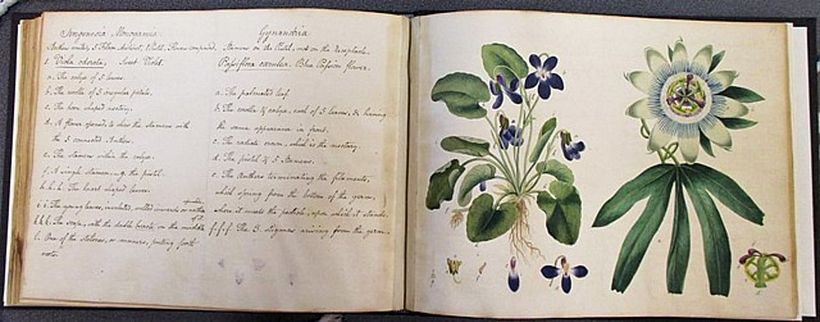 Syngenesia Monogamia.
Anthers united, 5 Filam. distinct, 1 Pistil, Flowers compound.
1. Viola odorata, Sweet Violet.
a. The calyx of 5 leaves.
b. The corolla of 5 irregular petals.
c. The horn shaped nectary.
d. A flower opened, to shew the Stamens with
the 5 connected Anthers.
e. The stamens within the calyx.
f. A single stamen. g. the pistil.
h.h.h. The heart shaped leaves.
i.i. The young leaves, involuted, rolled inwards on
k.k.k. The scape, with the double bracte, on the middle
l. One of the stolones, or runners, putting forth
roots.
Gynandria
Stamens on the Pistil, not on the Receptacle.
Passiflora cærulea. Blue Passion flower.
a. The palmated leaf.
b. The corolla & calyx, each of 5 leaves, & having
the same appearance in front.
c. The radiate crown, which is the nectary.
d. The pistil & 5 Stamens.
e. The Anthers terminating the filaments,
which spring from the bottom of the germ,
where it meets the pedicle, upon which it stands.
f.f.f. The 3. stigmas arising from the germ.